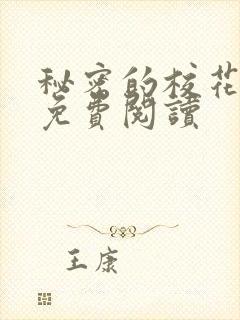 秘密的校花
免費閱讀
王康